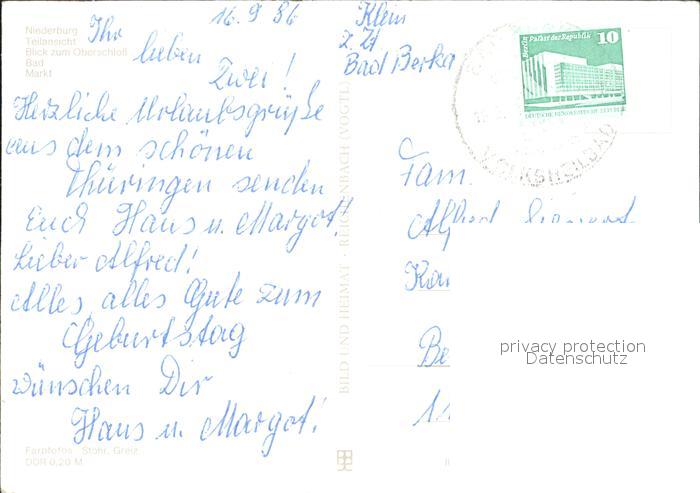 Niederburg
Teilansicht
Blick zum Oberschloß
Bad
Markt
16.9.86
Ihr
lieben
Zwei!
Herzliche Urlaubsgrüße
aus dem schönen
Thüringen senden
Euch Hans u. Margot!
Lieber Alfred!
Alles, alles Gute zum
Geburtstag
wünschen Dir
Hans u. Margot!
Farbfotos: Stöhr, Greiz
DDR 0,20 M
BILD UND HEIMAT · REICHENBACH (VOGTL)
Klein
z. Zt
Bad Berka
Berlin, Palast der Republik 10
DEUTSCHE DEMOKRATISCHE REPUBLIK
VOLKSHEILBAD
Fam.
Alfred
privacy protection
Datenschutz